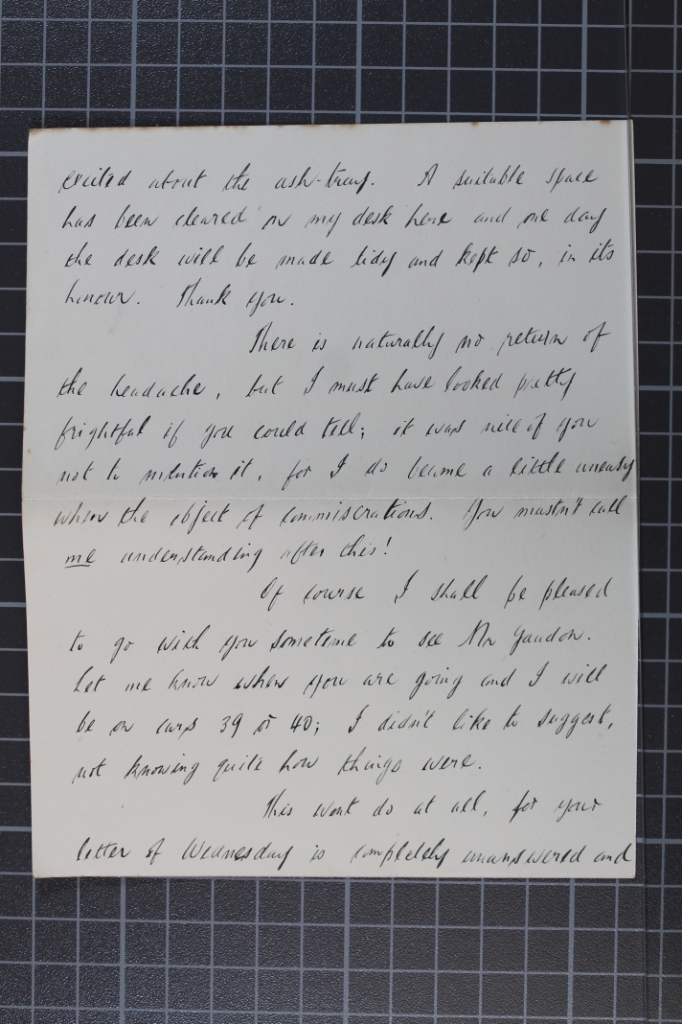 excited about the ash-tray. A suitable space
has been cleared on my desk here and one day
the desk will be made tidy and kept so, in its
honour. Thank you.
There is naturally no return of
the headache, but I must have looked pretty
frightful if you could tell; it was nice of you
not to mention it, for I do become a little uneasy
when the object of commiserations. You mustn't call
me understanding after this!
Of course I shall be pleased
to go with you sometime to see Mr
Let me know when you are going and I will
be on cars 39 or 40; I didn't like to suggest,
not knowing quite how things were.
This wont do at all, for your
letter of Wednesday is completely unanswered and